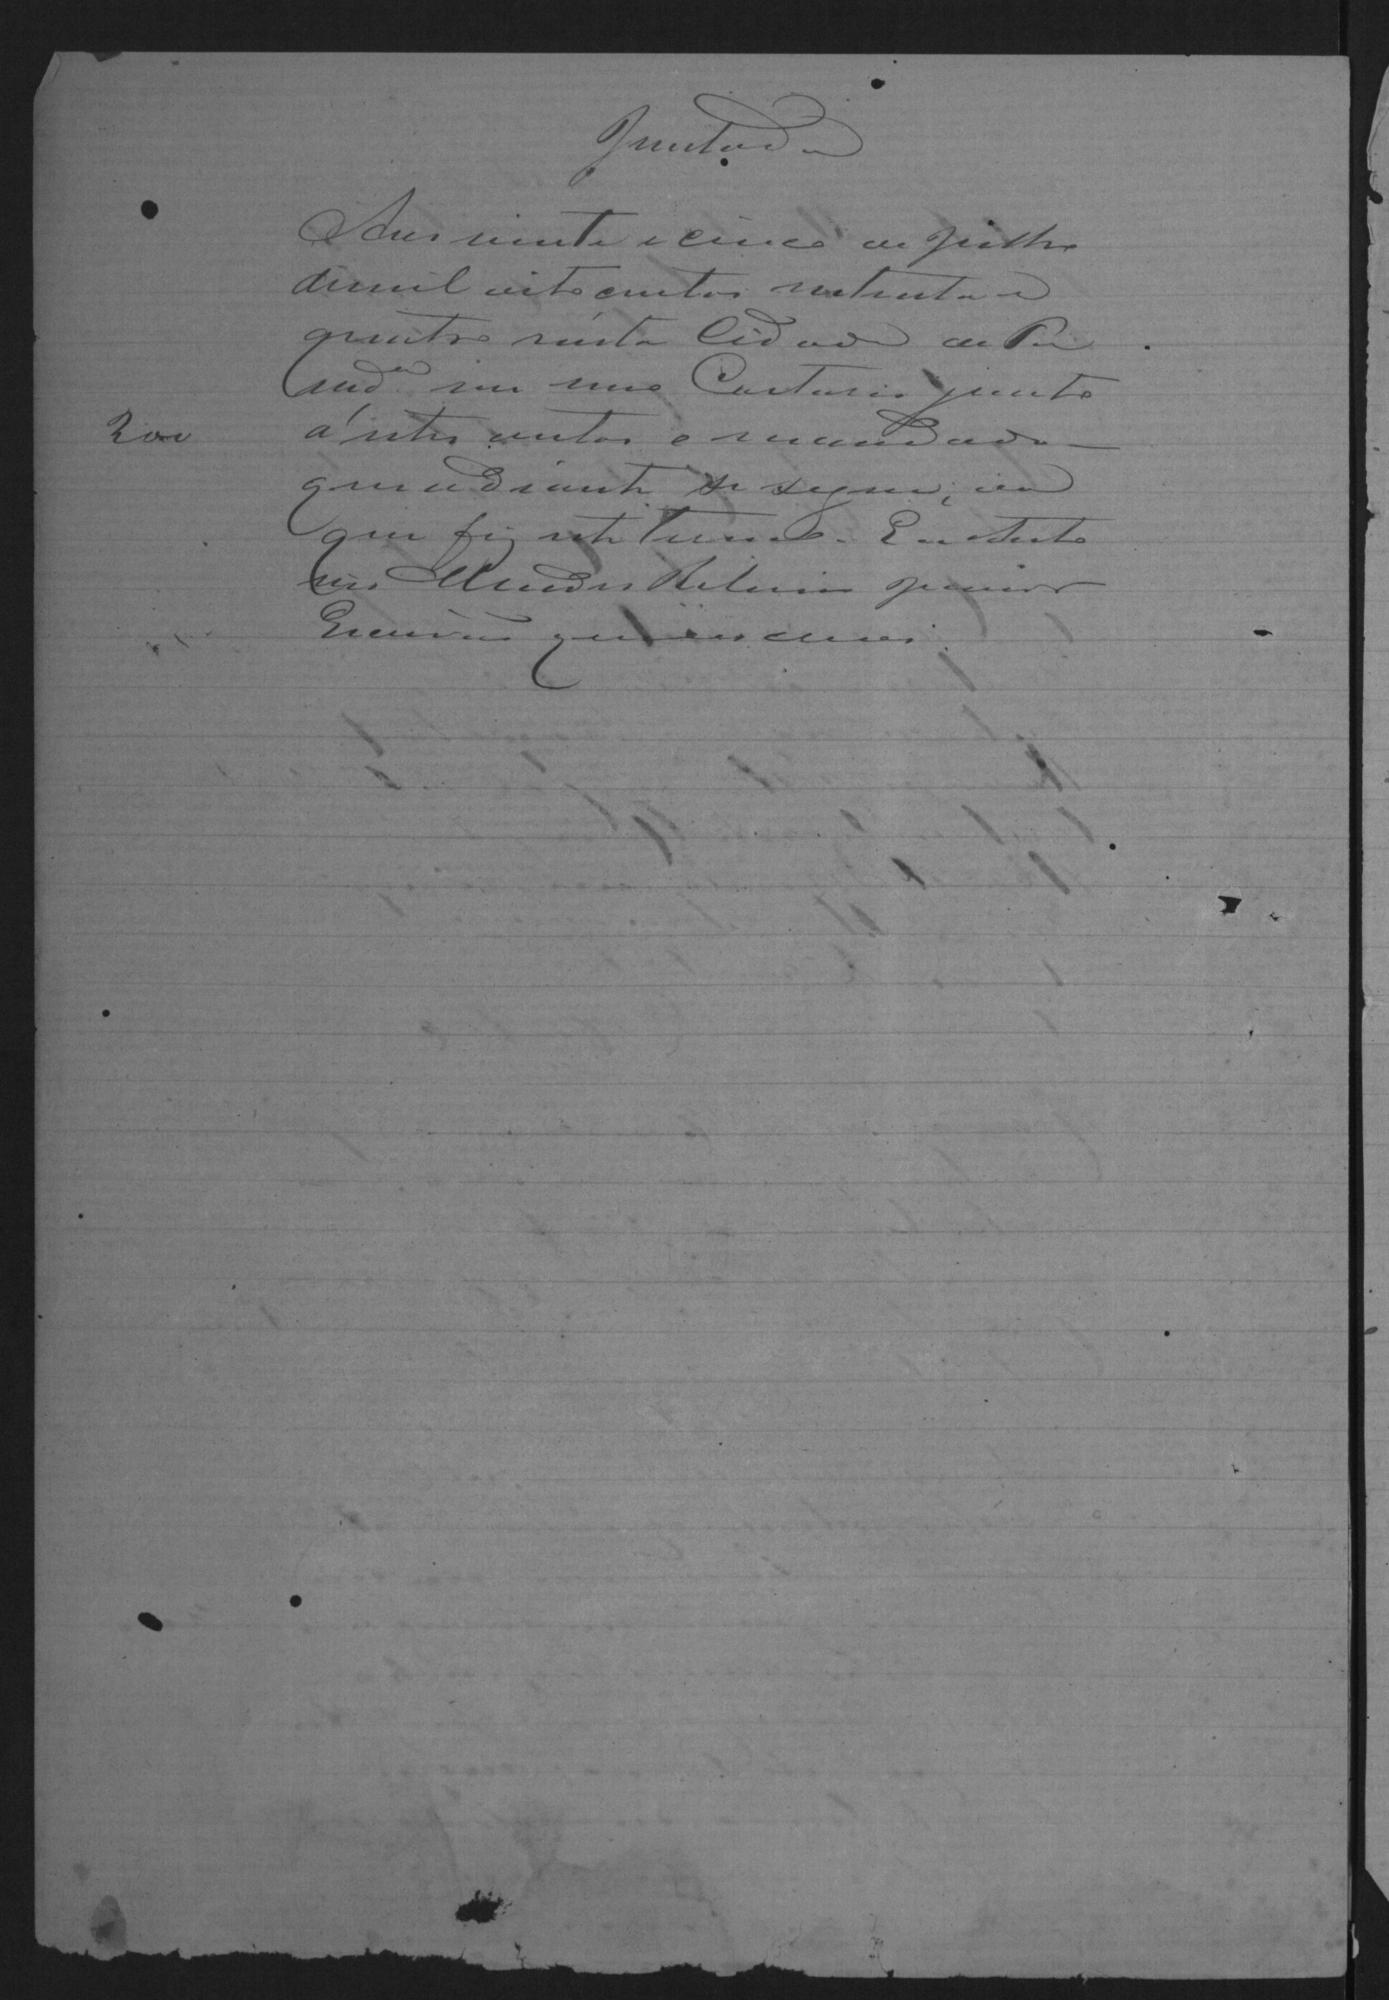 Juntada
Aos vinte e cinco de Julho
de mil oito centos setenta e
quatro nesta Cidade de
em meo Cartorio junto
200 á estes autos o mandado
que adiante se segue; do
que fiz este termo. Eu
Mendes Ribeiro Junior
Escrivão que escrevi.